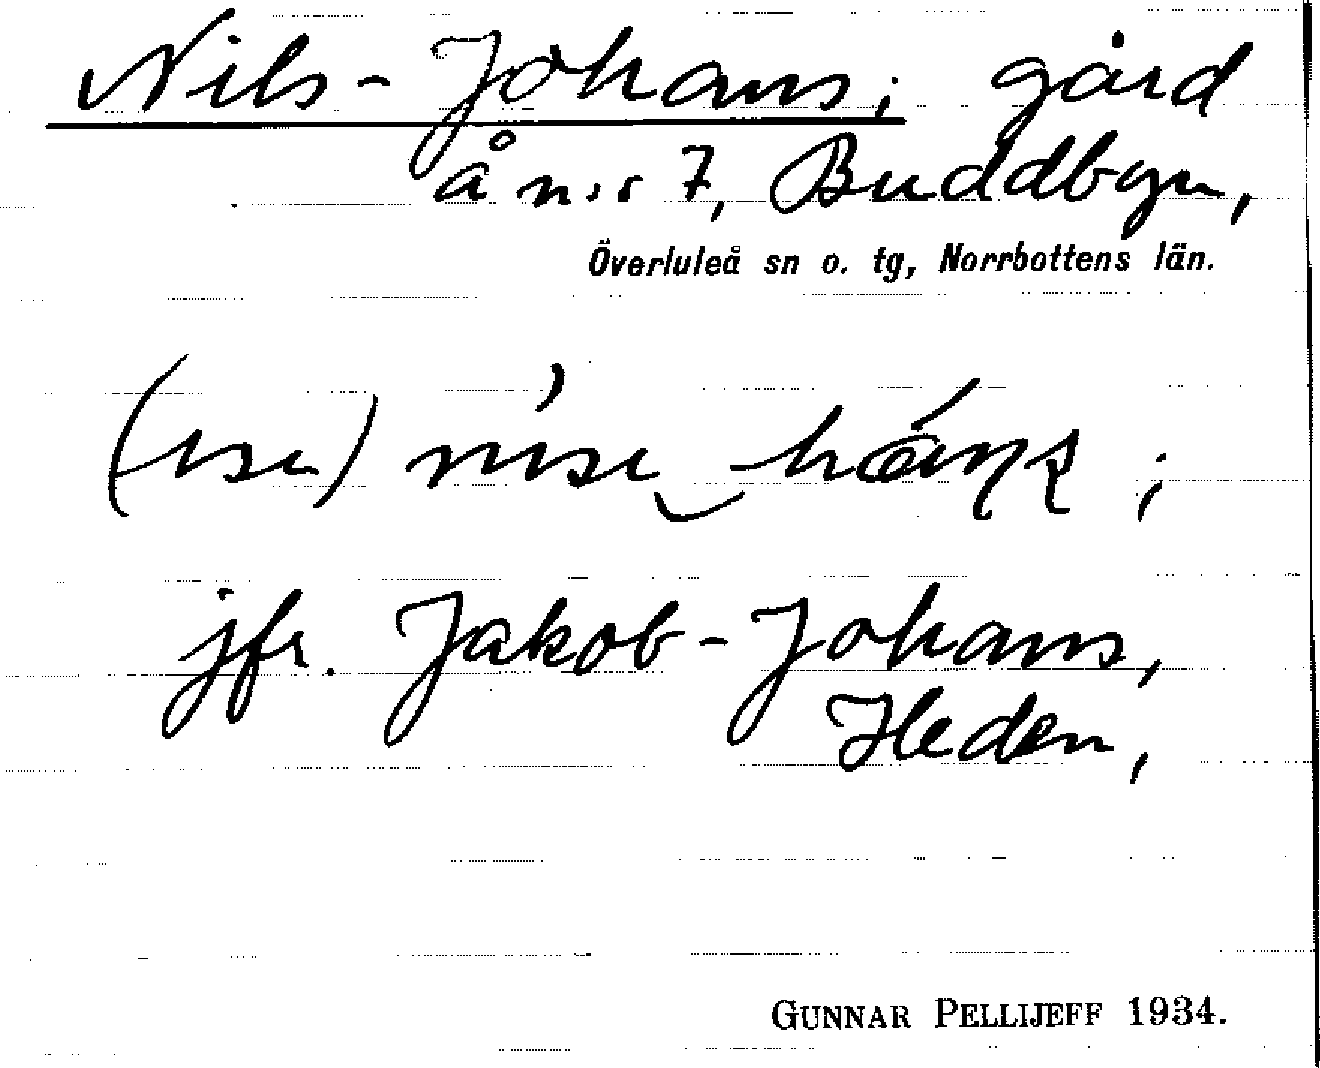 Nils-Johans; gård
å n:r 7, Buddbyn,
Överluleå sn o. tg, Norrbottens län.
jfr. Jakob-Johans,
Heden,
GUNNAR PELLIJEFF 1934.